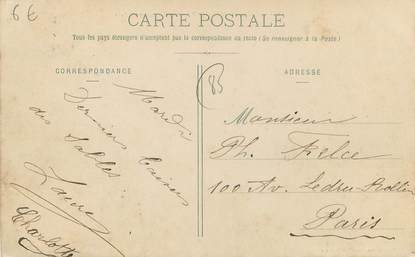 6€
CARTE POSTALE
Tous les pays étrangers n'acceptent pas la correspondance au recto (Se renseigner à la Poste)
CORRESPONDANCE
ADRESSE
85
Mardi
Derniers baisers
des Sables
Laure
Charlotte
Monsieur
Ph. Felce
100 Av. Ledru-Rollin
Paris